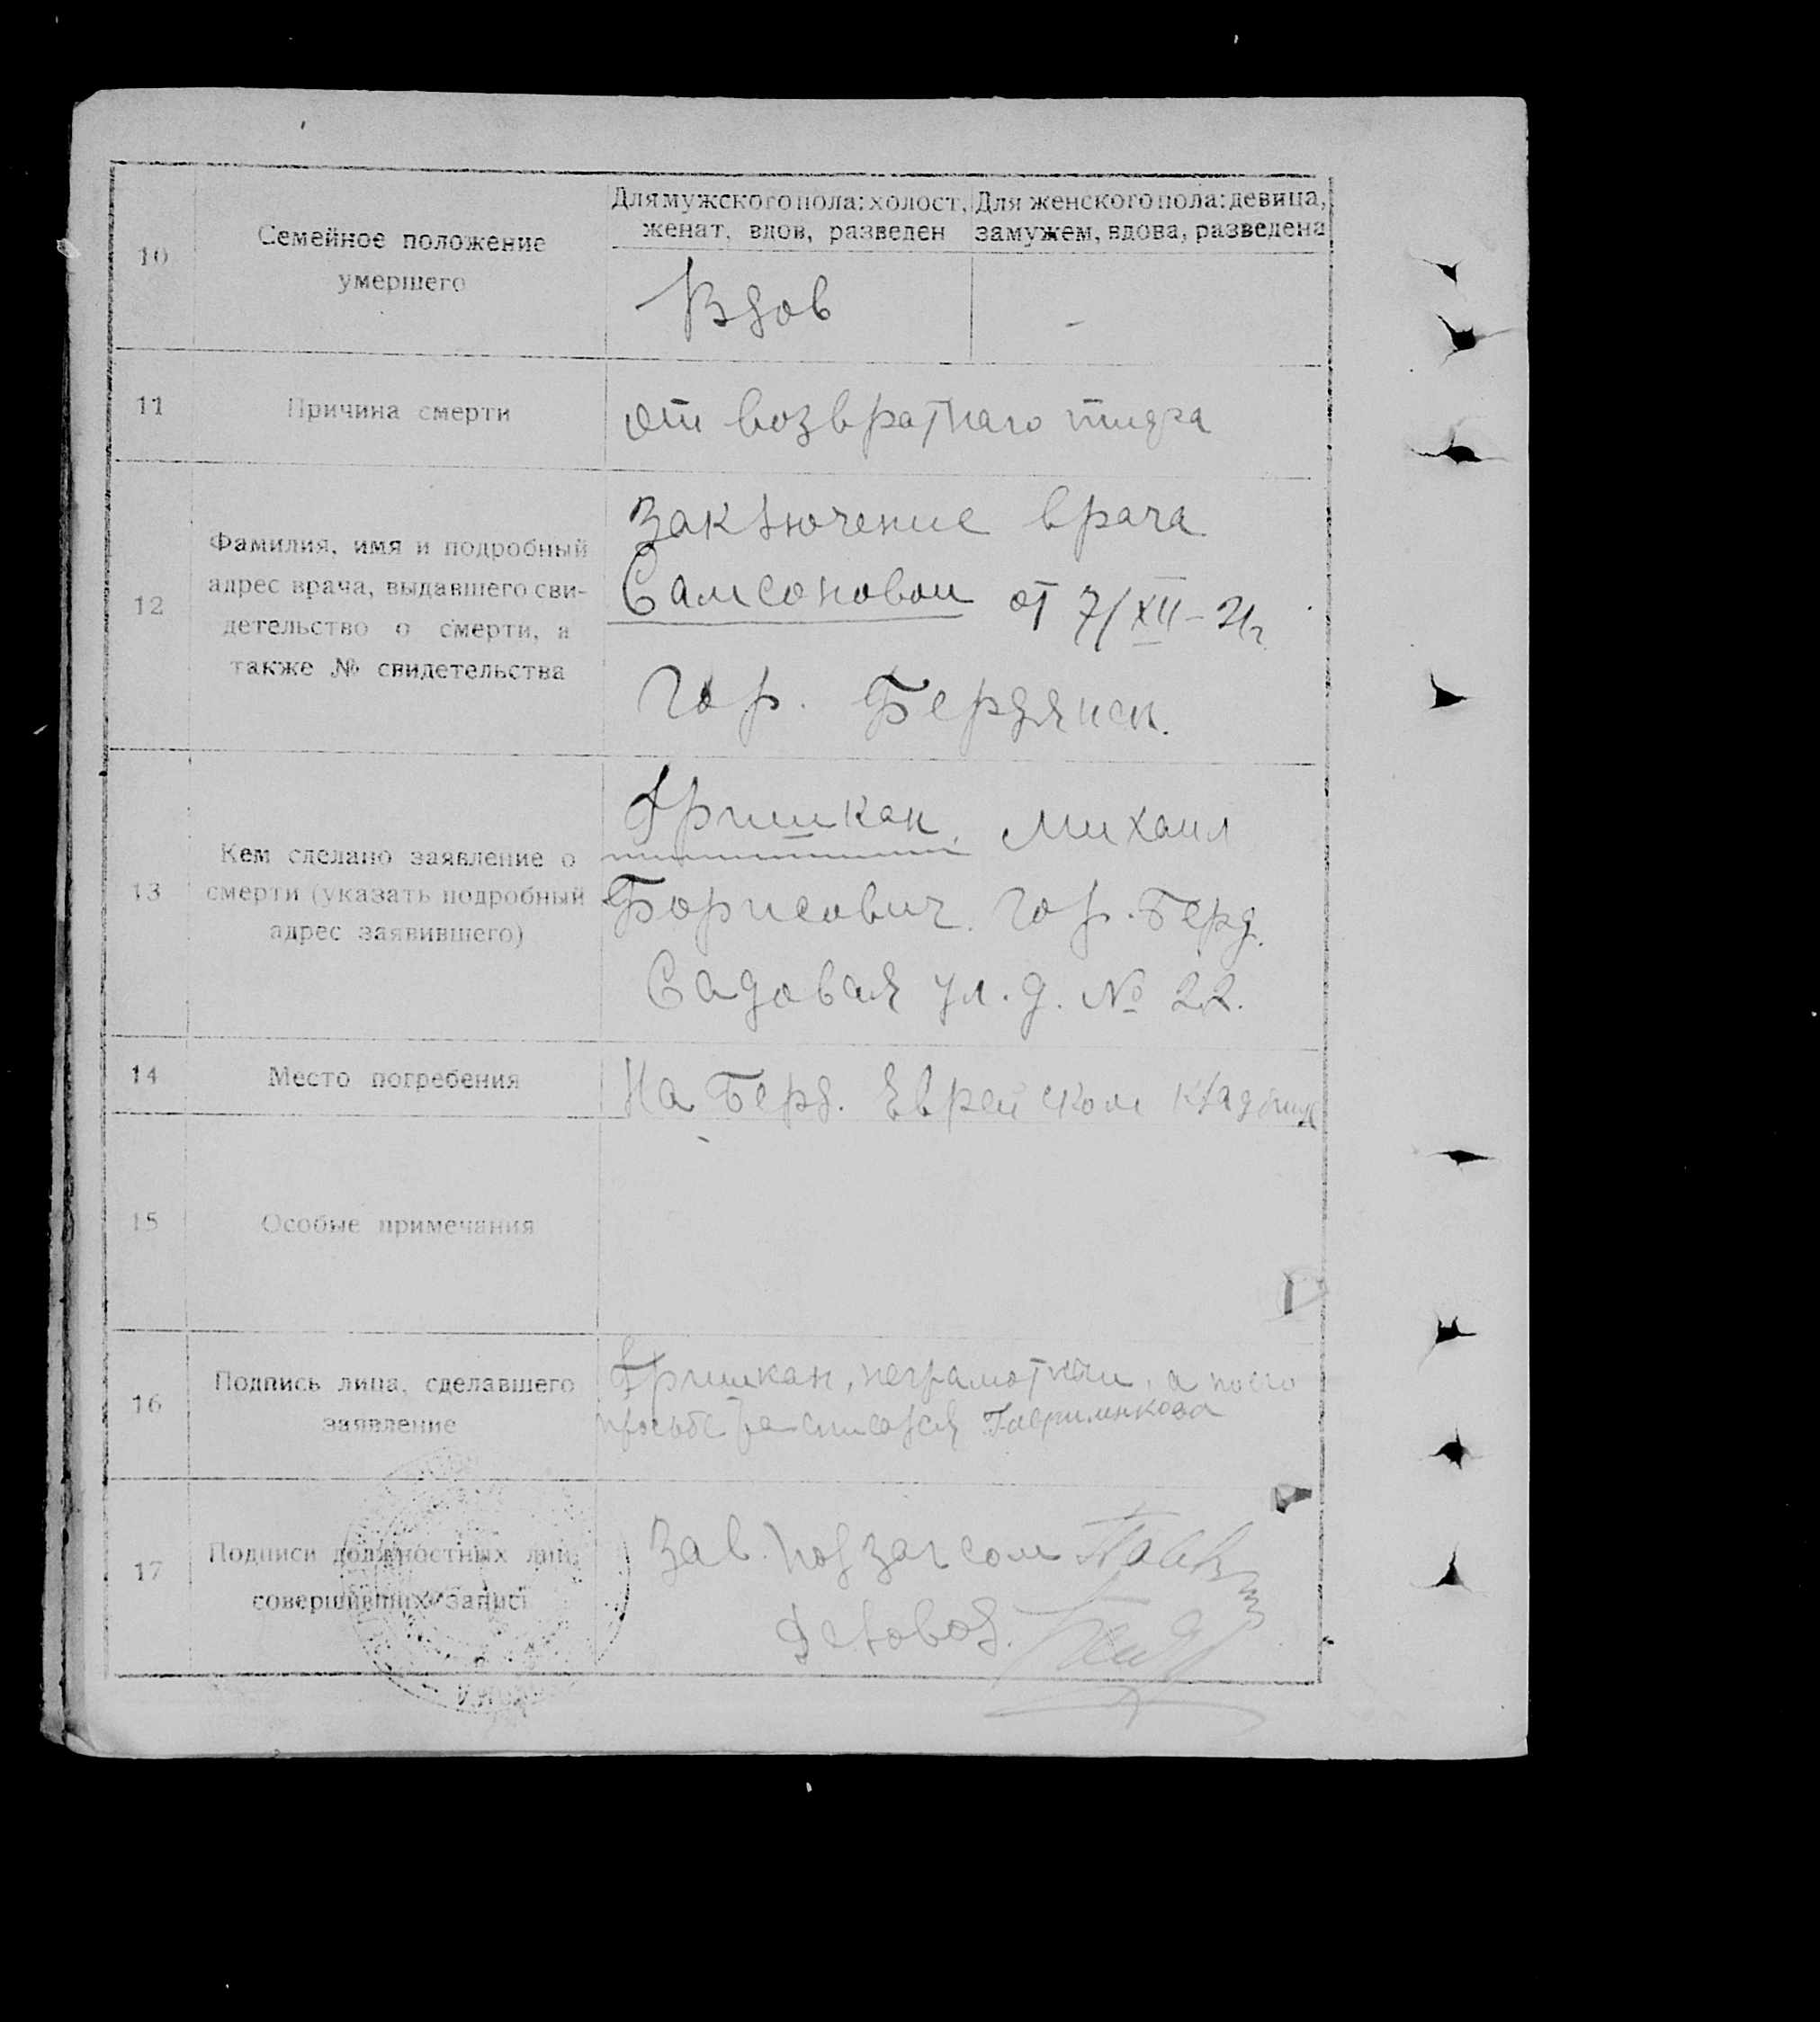 10
Семейное положение
умершего
Для мужского пола: холост,
женат, вдов, разведен
Для женского пола: девица,
замужем, вдова, разведена
Вдов
-
11
Причина смерти
от возвратнаго тифа
12
Фамилия, имя и подробный
адрес врача, выдавшего сви-
детельство о смерти, а
также № свидетельства
Заключение врача
Самсоновой от 7/XII-21г
Гор. Бердянск.
13
Кем сделано заявление о
смерти (указать подробный
адрес заявившего)
Гришкан, Михаил
Борисович. Гор. Берд.
Садовая ул. д. № 22.
14
Место погребения
На Берд. Еврейском кладбище
15
Особые примечания
16
Подпись лица, сделавшего
заявление
Гришкан, неграмотный, а по его
просьбе расписался
17
Подписи должностных лиц,
совершивших записи
Зав. подзагсом
Деловод.